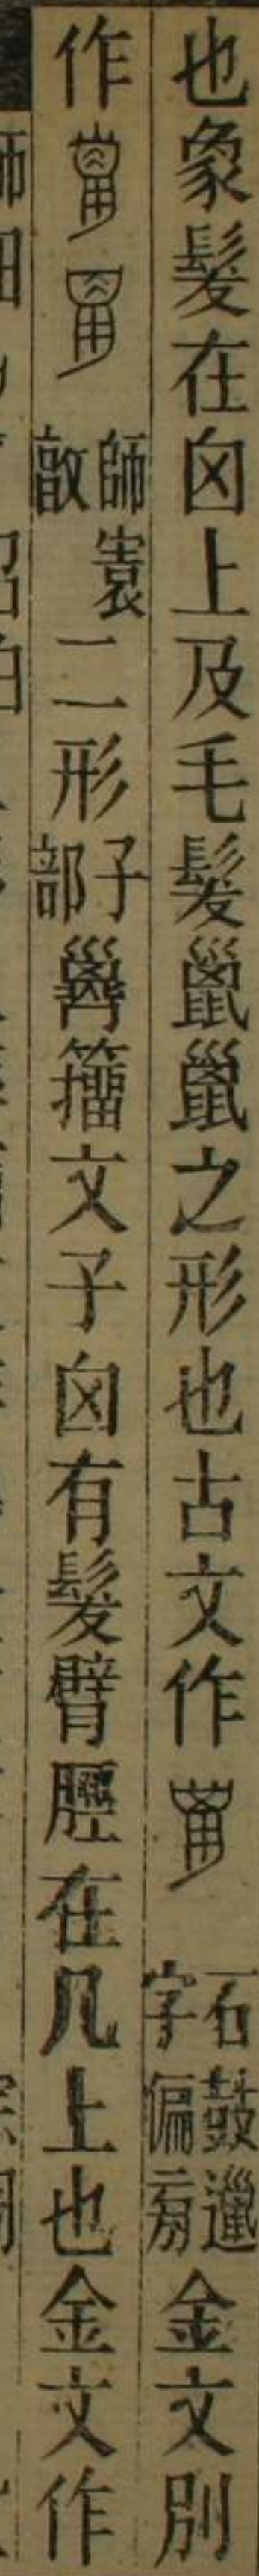 也象髮在囟上及毛髮鬣鬣之形也古文作石鼓邋字偏旁金文別
作師寰師𣪘二形子部籀文子囟有髮臂脛在几上也金文作